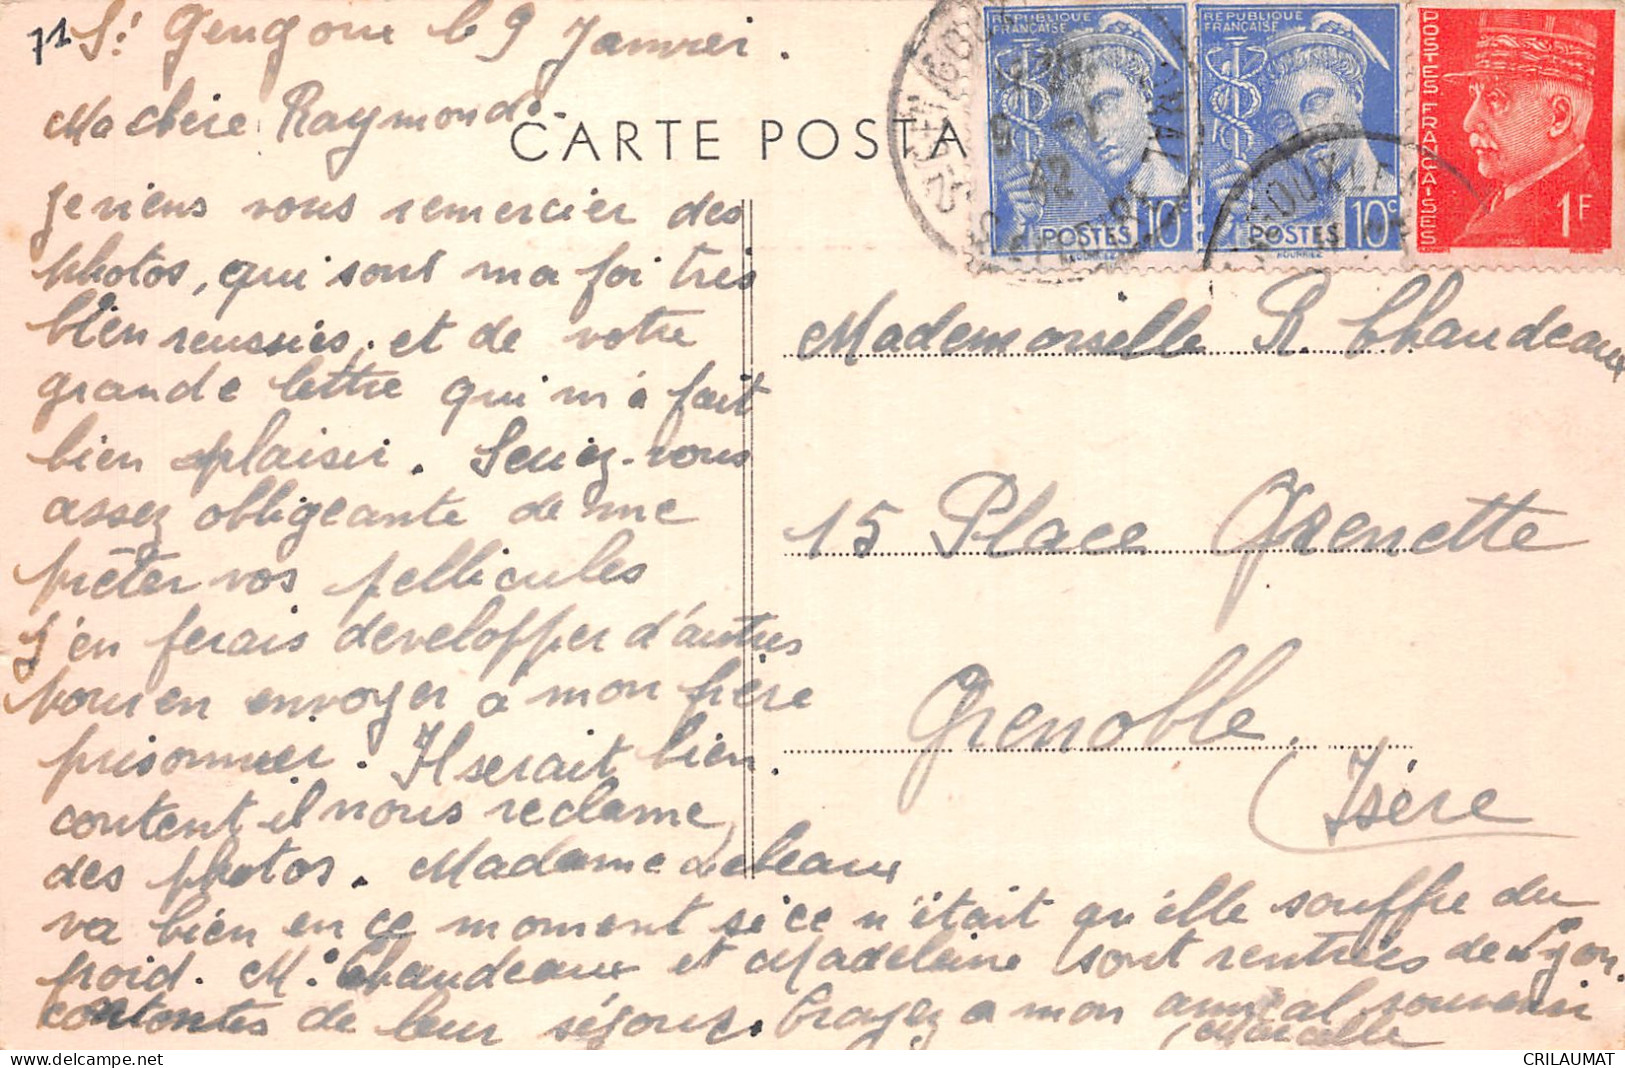 71
St Gengoux le 9 Janvier.
Ma chère Raymonde
CARTE POSTA
Je viens vous remercier des
photos, qui sont ma foi très
bien reussies, et de votre
grande lettre qui m'a fait
bien plaisir. Seriez-vous
assez obligeante de me
prêter vos pellicules
J'en ferais developper d'autres
pour en envoyer à mon frère
prisonnier. Il serait bien
content, il nous reclame
des photos. Madame
va bien en ce moment si ce n'était qu'elle souffre du
froid. M. Chaudeaux et Madeleine sont rentrées de Lyon.
contentes de leur séjour. Croyez a mon amical souvenir
Marcelle
RÉPUBLIQUE
FRANÇAISE
10c
POSTES
RÉPUBLIQUE
FRANÇAISE
10c
POSTES
POSTES FRANÇAISES
1F
9 -1
42
Mademoiselle R. Chaudeaux
15 Place Grenette
Grenoble.
Isère
CRILAUMAT